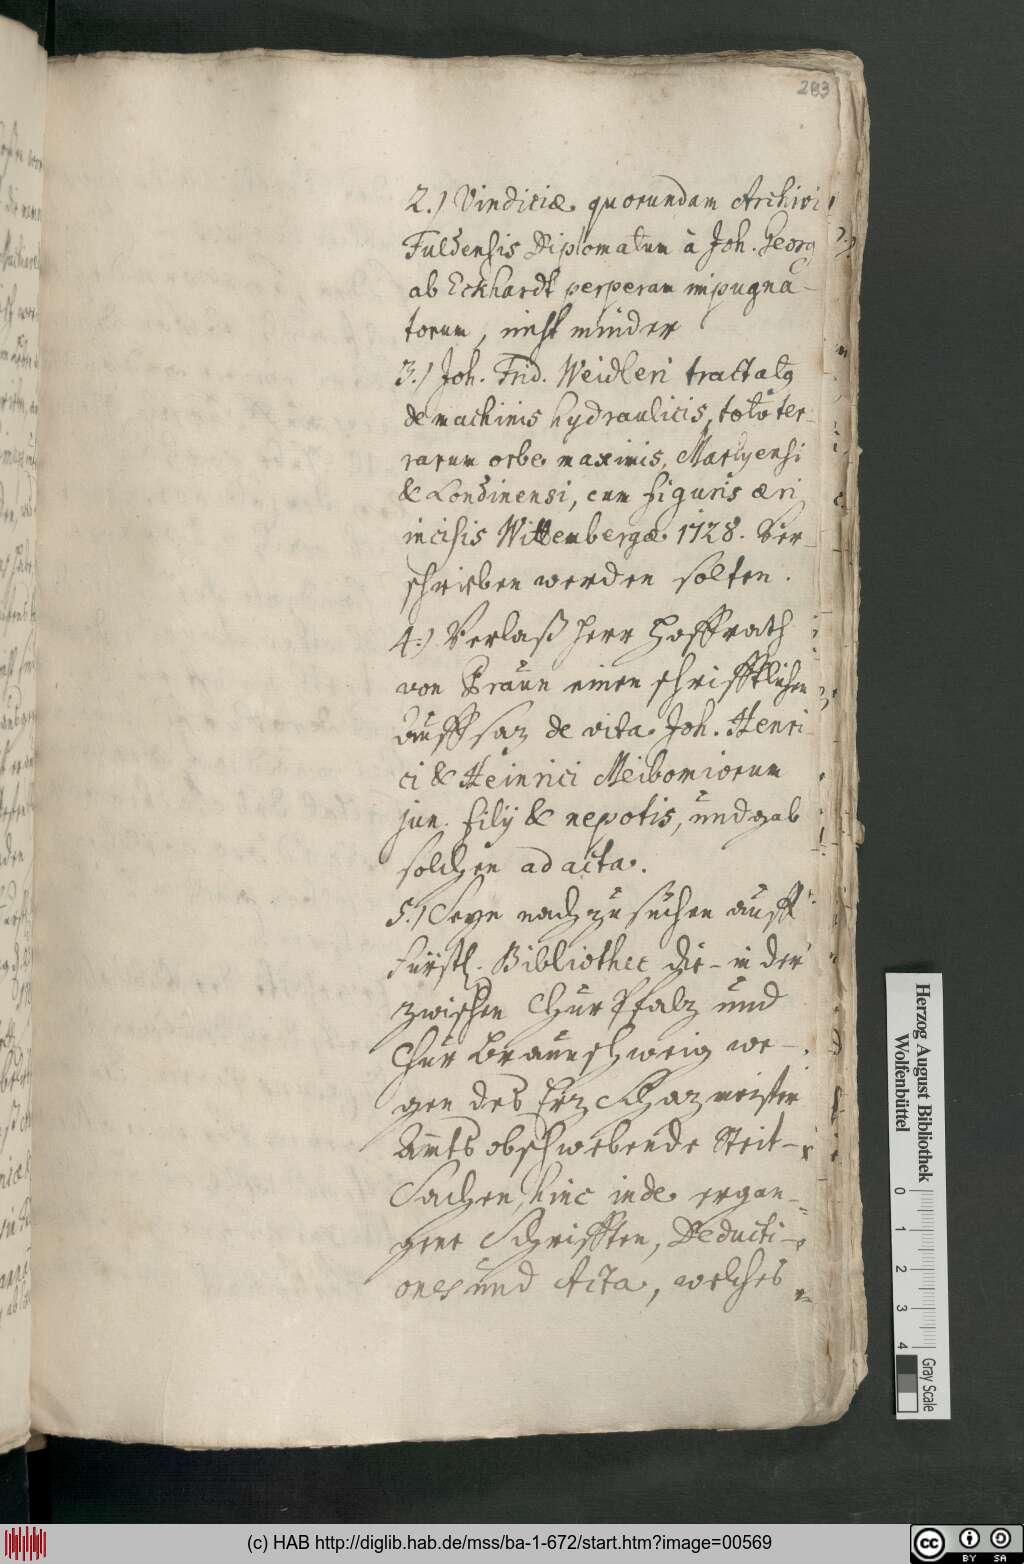 283
2.) Vindiciæ quorundam Archivi
Fuldensis Diplomatum à Joh. Georg
ab Eckhardt perperam impugna-
torum, nicht minder
3.) Joh. Frid. Weidleri tractatg
de machinis hydraulicis, toto ter-
rarum orbe maximis, Marlyensi
& Londinensi, cum figuris æri
incisis Wittenbergæ 1728. ver-
schrieben werden solten.
4.) Verlaß herr Hoffrath
von Praun einen schrifftlichen
Auffsaz de vita Joh. Henri-
ci & Heinrici Meibomiorum
jun. filij & nepotis, und gab
solchen ad acta.
5.) Seyn nachzusuchen auff
Fürstl. Bibliothec die - in der
zwischen Chur Pfalz und
Chur Braunschweig we-
gen des Erz Schazmeister
Amts obschwebende Streit-
Sachen, hinc inde ergan-
gene Schrifften, Deducti-
ones und Acta, welches
Herzog August Bibliothek
Wolfenbüttel
0 1 2 3 4
Gray Scale
(c) HAB http://diglib.hab.de/mss/ba-1-672/start.htm?image=00569
cc BY SA